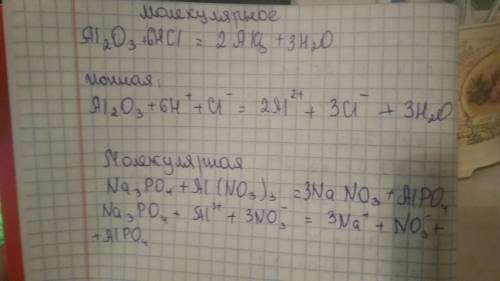 молекулярное
Al₂O₃ + 6HCl = 2 AlCl₃ + 3H₂O
ионная:
Al₂O₃ + 6H⁺ + Cl⁻ = 2Al²⁺ + 3Cl⁻ + 3H₂O
Молекулярная
Na₃PO₄ + Al(NO₃)₃ = 3NaNO₃ + AlPO₄
Na₃PO₄ + Al³⁺ + 3NO₃⁻ = 3Na⁺ + NO₃⁻ +
+ AlPO₄